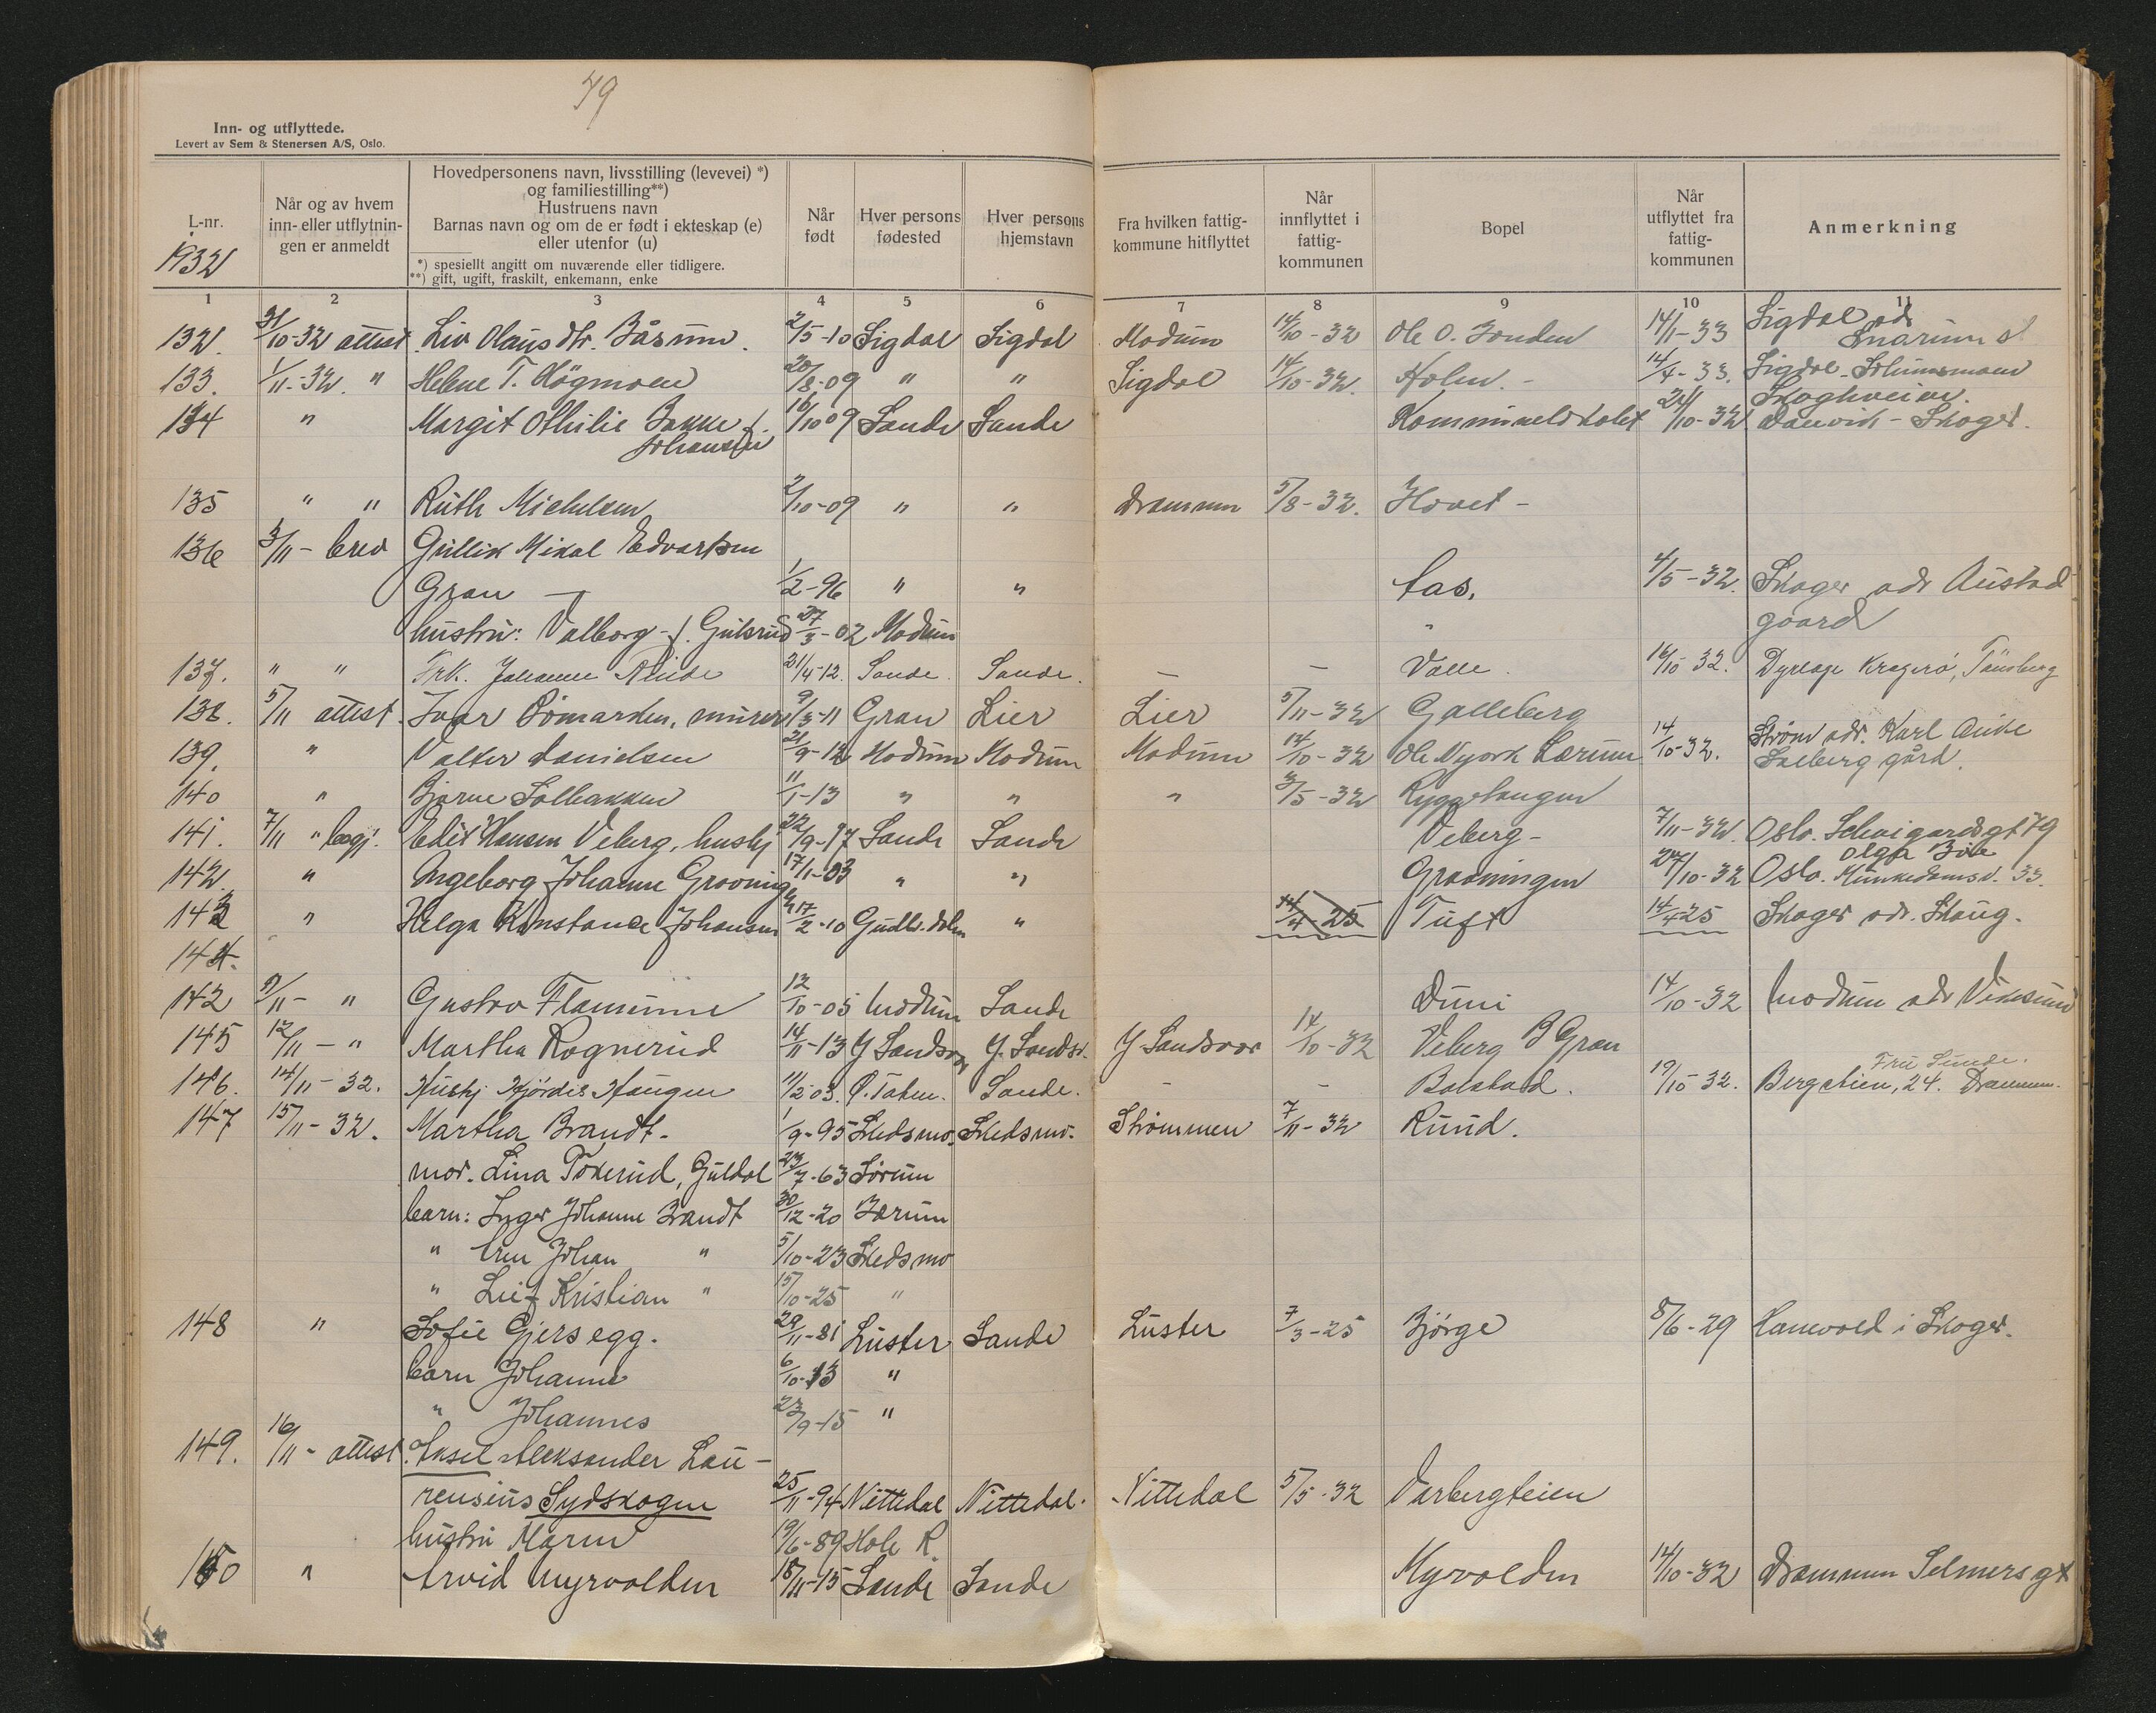 79
Inn- og utflyttede.
Levert av Sem & Stenersen A/S, Oslo.
L-nr.
1932
Når og av hvem inn- eller utflytnin- gen er anmeldt
Hovedpersonens navn, livsstilling (levevei) *)
og familiestilling**)
Hustruens navn
Barnas navn og om de er født i ekteskap (e)
eller utenfor (u)
*) spesiellt angitt om nuværende eller tidligere.
**) gift, ugift, fraskilt, enkemann, enke
Når født
Hver persons fødested
Hver persons hjemstavn
Fra hvilken fattig- kommune hitflyttet
Når innflyttet i fattig- kommunen
Bopel
Når utflyttet fra fattig- kommunen
Anmerkning
1 2 3 4 5 6 7 8 9 10 11
132. 31/10-32 attest Liv Olausdtr. Båsum. 2/5-10 Sigdal Sigdal Modum 14/10-32 Ole O. Jonden 14/1-33 Sigdal adr
Snarum st
133. 1/11-32. " Helene T. Högmoen 20/8-09 " " Sigdal 14/10-32. Holm. - 14/4-33. Sigdal
134 " Margit Othilie Bakke f. 16/10 09 Sande Sande 24/10-32 Danvik - Skoger.
Johansen
135 " " Ruth Michelsen 2/10-09 " " Drammen 5/8-32. Hovet -
136 3/11- brev Gullik Mikal Edvartsen
Gran 1/2-96 " " Aas. 4/5-32. Skoger adr Austad
hustru: Valborg f. Gulsrud 27/3-02 Modum " gaard
137. " " Frk. Johanne Auide 21/4-12. Sande. Sande. - - Valle. 16/10 32. Kragerö, Tönsberg
138. 5/11 attest. Ivar Lömarken, murer 9/3-11 Gran Lier Lier 5/11-32 Galleberg
139. " Valter Danielsen 21/9-12 Modum Modum Modum 14/10-32 Ole Nyork Lærum 14/10-32. Strøm adr. Karl Auke
Solberg gård.
140 " Bjarne Solbakken 11/1-13 " " " 3/5-32 Ryggetangen
141. 7/11 " begj. Edit Hansen Veberg, hushj 22/9-17 Sande Sande Veberg - 7/11-32. Oslo. Schweigaardsgt 79
Olga Bøe
142. " Ingeborg Johanne Grooningen 17/1-03 " " Grooningen 24/10-32 Oslo. Munkedamsv. 33.
143 " Helga Konstance Johansen 17/2-10 Gudbr.dalen " 14/4-25 Tuft 14/4 25 Skoger adr. Skaug.
144.
142 9/11- " Gustav Flamunne 12/10-05 Modum Sande Duni 14/10-32 Modum adr Vikesund
145 12/11- " Martha Rognerud 14/11-13 Y Sandsvær Y. Sandsv. Y. Sandsvær 14/10-32 Veberg B Gran
146. 14/11-32. Hushj Hjördis Haugen 11/2 03. Ø. Toten. Sande. - - Bolstad. 19/10 32. Bergstien, 24. Drammen.
Fru Lunde.
147 15/11-32. Martha Brandt. 1/9-95 Skedsmo. Skedsmo. Strømmen 7/11-32 Rund.
mor. Lina Tokerud, Guldal 23/7-63 Sørum
barn: Inger Johanne Brandt 30/12-20 Bærum
" Arne Johan " 5/10-23 Skedsmo
" Leif Kristian " 15/10-25 "
148 " Sofie Gjersegg. 29/11-81 Luster Sande Luster 7/3-25 Bjørge 8/6-29 Hanevold i Skoger.
barn Johanne 6/10-13 "
" Johannes 23/9-15 "
149. 16/11- attest. Aksel Aleksander Lau-
rensius Sydskogen 25/11-94 Nittedal Nittedal. Nittedal 5/5-32 Varbergteien
hustru Maren 19/6-89 Hole R.
150 " Arvid Myrvolden 18/11-15 Sande Sande Myrvolden 14/10-32 Drammen Selmersgt